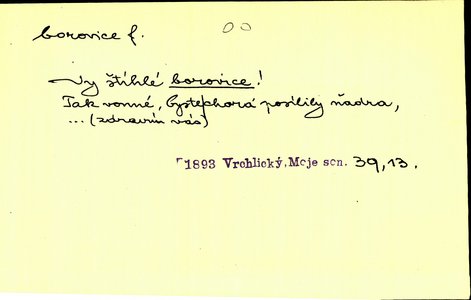 borovice f.
Vy štíhlé borovice!
Tak vonné, posílily ňadra,
... (zdravím vás)
1893 Vrchlický, Moje son. 39,13.